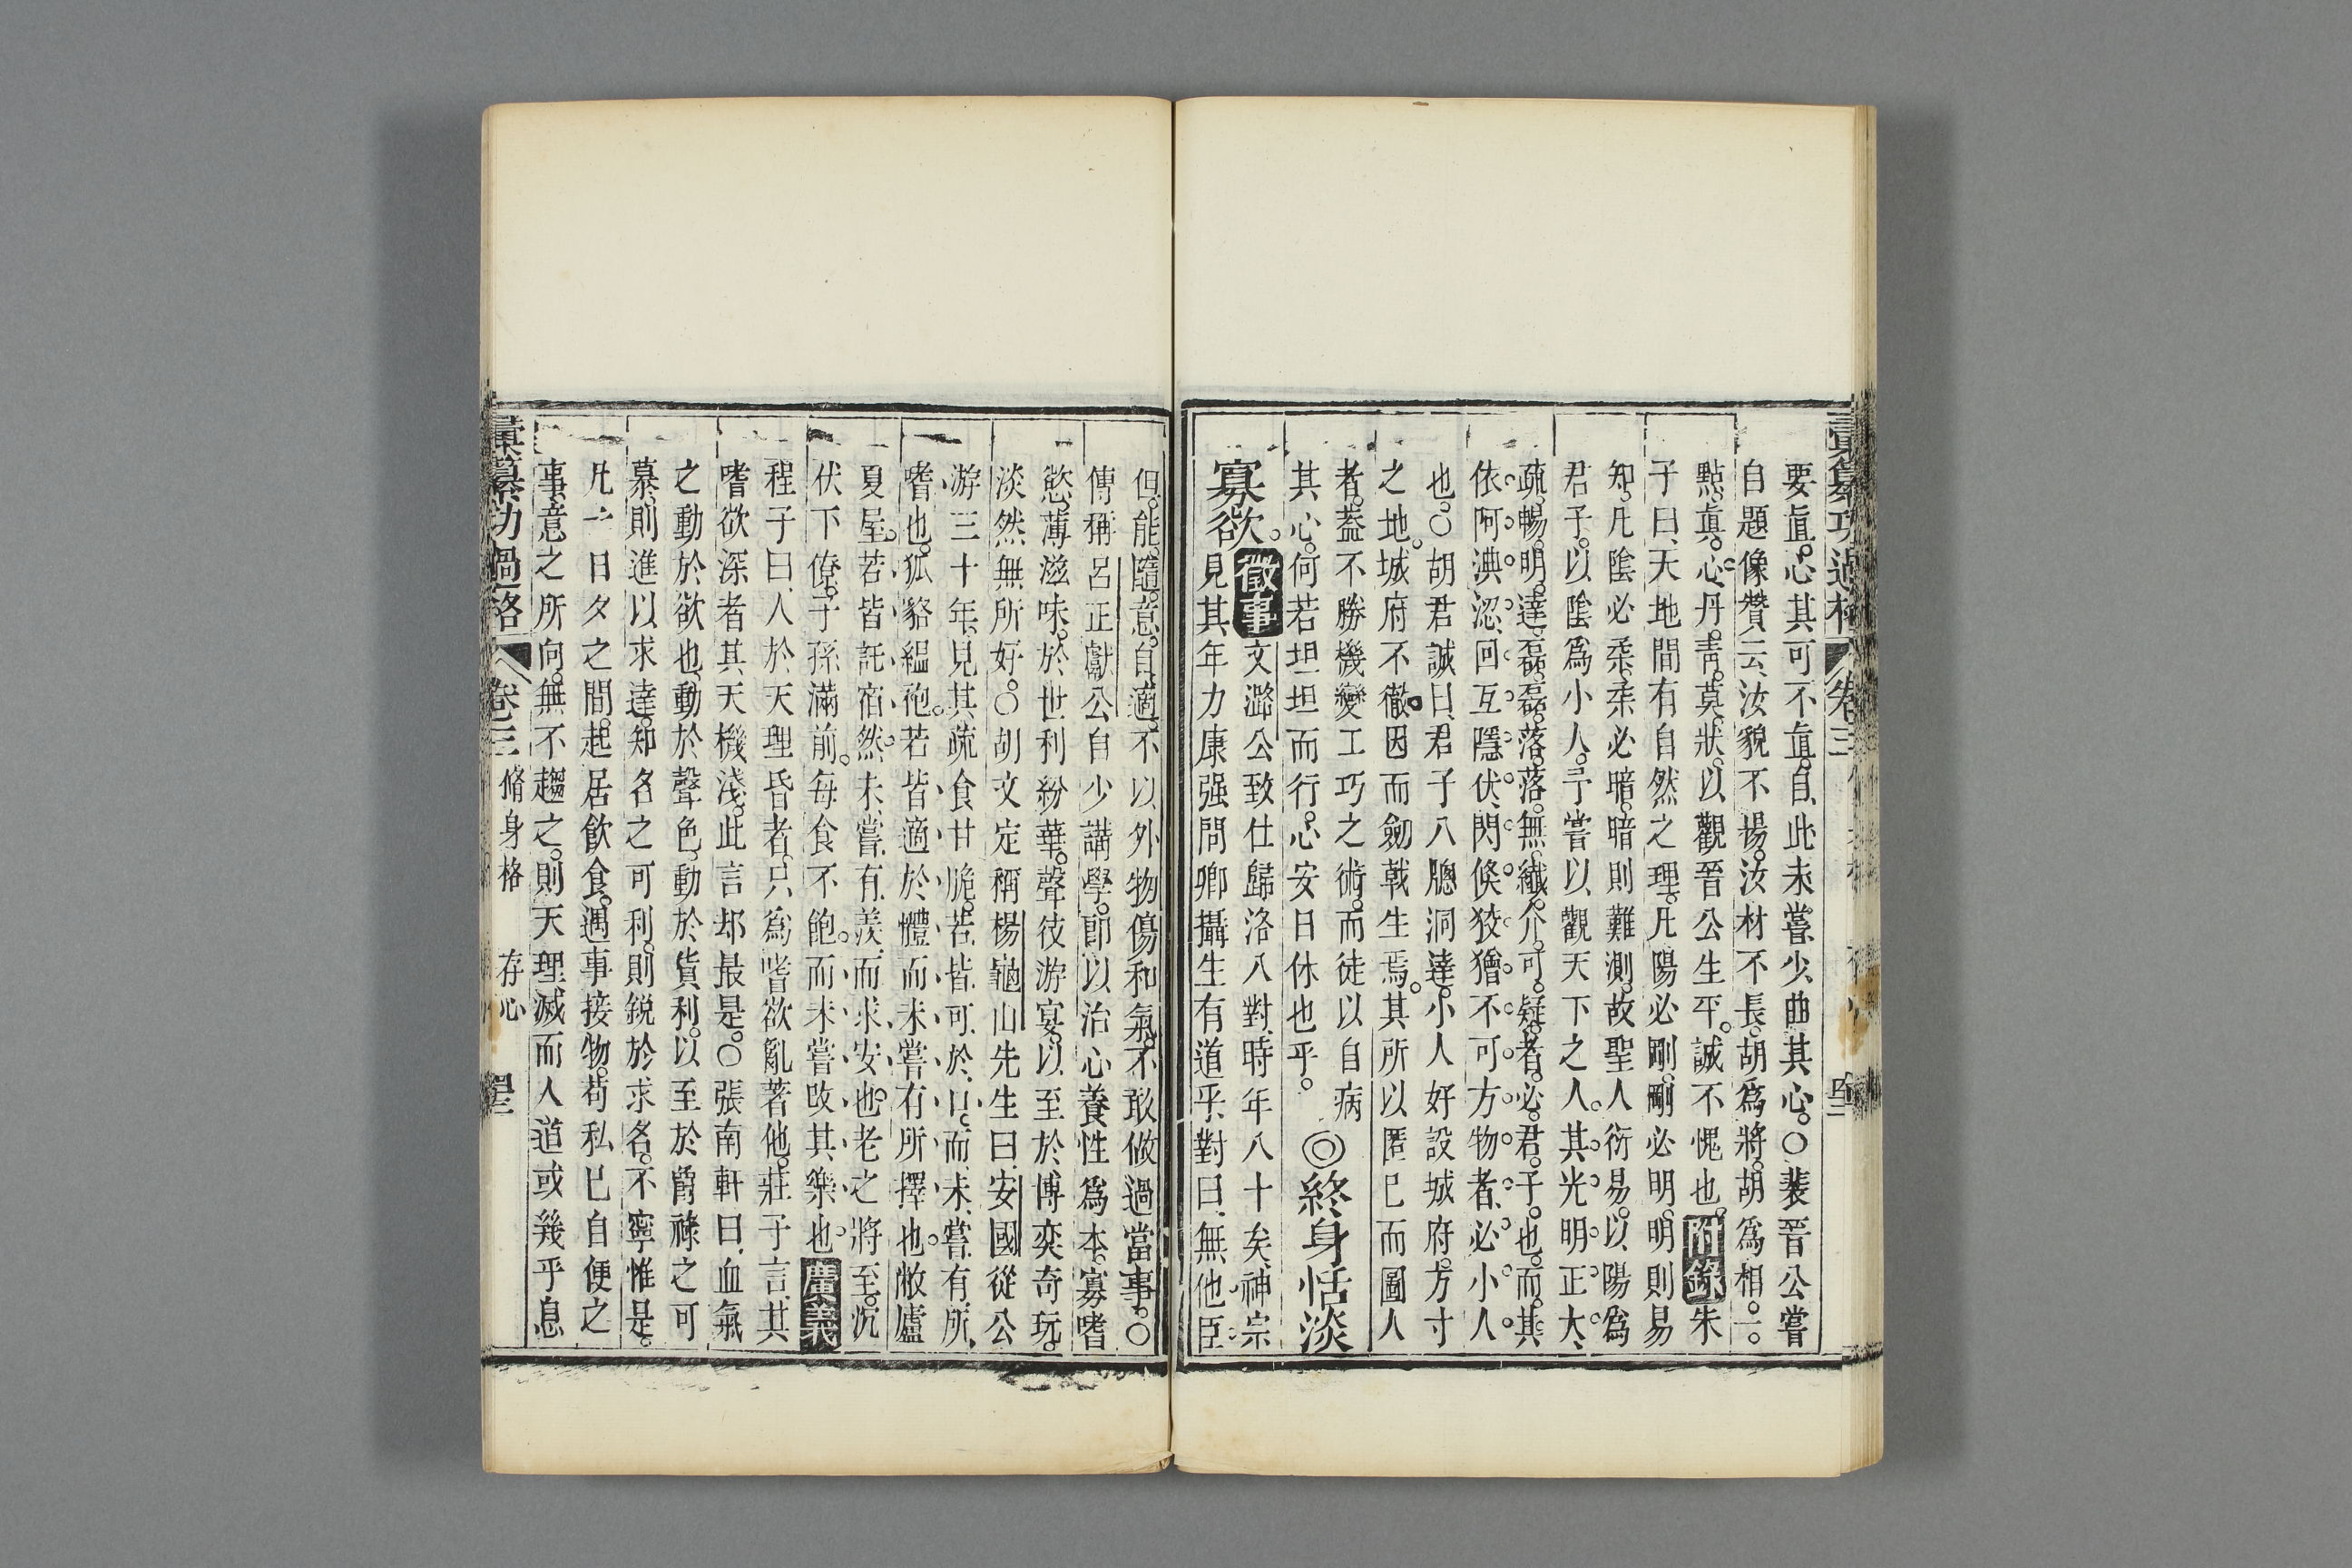 要眞心其可不眞自此未嘗少曲其心○裴晉公嘗
自題像贊云汝貌不揚汝材不長胡爲將胡爲相一
點眞心丹靑莫狀以觀晉公生平誠不愧也附錄朱
子曰天地間有自然之理凡陽必剛剛必明明則易
知凡陰必柔柔必暗暗則難測故聖人衍易以陽爲
君子以陰爲小人予嘗以觀天下之人其光明正大
疏暢明達磊磊落落無纖介可疑者必君子也而其
依阿淟涊回互隱伏閃倐狡獪不可方物者必小人
也○胡君誠曰君子八牕洞達小人好設城府方寸
之地城府不徹因而劒戟生焉其所以匿已而圖人
者葢不勝機變工巧之術而徒以自病
其心何若坦坦而行心安日休也乎 ◎終身恬淡
寡欲 徵事 文潞公致仕歸洛入對時年八十矣神宗
見其年力康强問卿攝生有道乎對曰無他臣
彙纂功過格 卷三
但能隨意自適不以外物傷和氣不敢做過當事○
傳稱呂正獻公自少講學卽以治心養性爲本寡嗜
慾薄滋味於世利紛華聲伎游宴以至於博奕奇玩
淡然無所好○胡文定稱楊龜山先生曰安國從公
游三十年見其疏食甘脆若皆可於口而未嘗有所
嗜也狐貉縕袍若皆適於體而未嘗有所擇也敝廬
夏屋若皆託宿然未嘗有羨而求安也老之將至沉
伏下僚子孫滿前每食不飽而未嘗改其樂也廣義
程子曰人於天理昏者只爲嗜欲亂著他莊子言其
嗜欲深者其天機淺此言却最是○張南軒曰血氣
之動於欲也動於聲色動於貨利以至於爵祿之可
慕則進以求達知名之可利則銳於求名不寧惟是
凡一日夕之間起居飲食遇事接物苟私已自便之
事意之所向無不趨之則天理滅而人道或幾乎息
彙纂功過格 卷三 脩身格 存心 四三